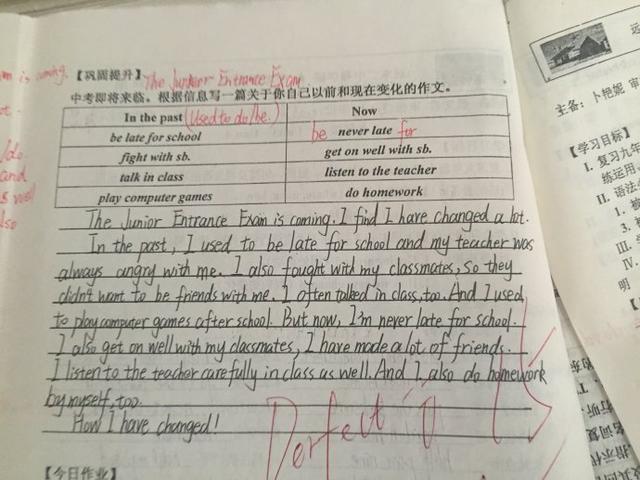 m is coming.
【巩固提升】 The Junior Entrance Exam
中考即将来临。根据信息写一篇关于你自己以前和现在变化的作文。
In the past (used to do/be.) Now
be late for school be never late for
fight with sb. get on well with sb.
talk in class listen to the teacher
play computer games do homework
The Junior Entrance Exam is coming. I find I have changed a lot.
In the past, I used to be late for school and my teacher was
always angry with me. I also fought with my classmates, so they
didn't want to be friends with me. I often talked in class, too. And I used
to play computer games after school. But now, I'm never late for school.
I also get on well with my classmates, I have made a lot of friends.
I listen to the teacher carefully in class as well. And I also do homework
by myself, too.
How I have changed!
Perfect
【今日作业】
do
and
well
also
主备：卜艳妮 审
【学习目标】
I. 复习九年
练运用
II. 语法
III.
IV.
明